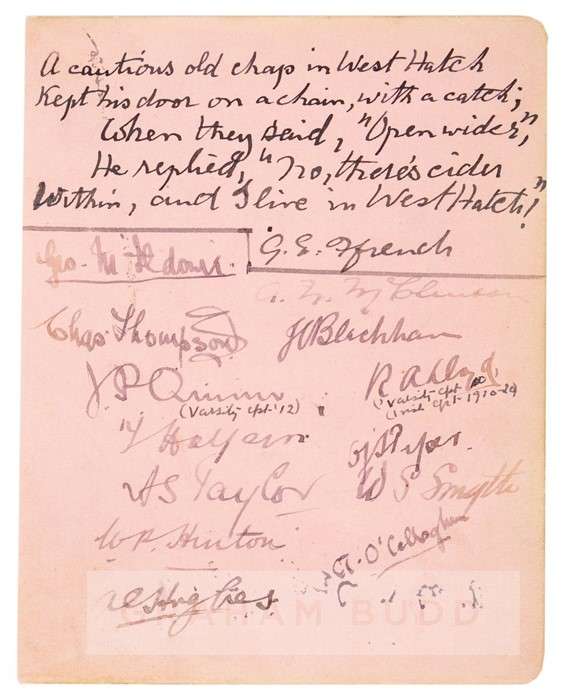 A cautious old chap in West Hatch
Kept his door on a chain, with a catch;
When they said, "Open wider",
He replied, "No, there's cider
Within, and I live in West Hatch!"
G. E. Ffrench
Geo. M
Chas. Thompson
J C Blackham
J P Quinn
(Varsity cpt '12)
R A Lloyd
(Varsity cpt
(Irish cpt 1910-
Halpin
A S Taylor
W S Smyth
W. P. Hinton
O'Callaghan
Hughes
GRAHAM BUDD